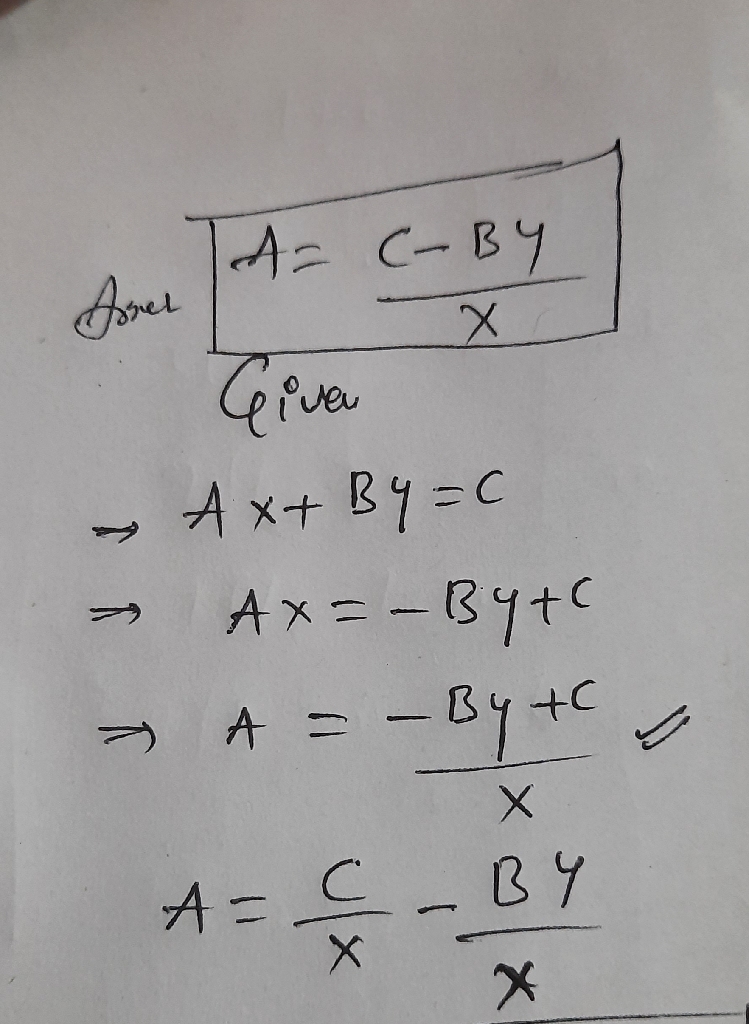 A = C - By / x
Given
→ Ax + By = C
⇒ Ax = - By + C
⇒ A = - By + C / x
A = C / x - By / x